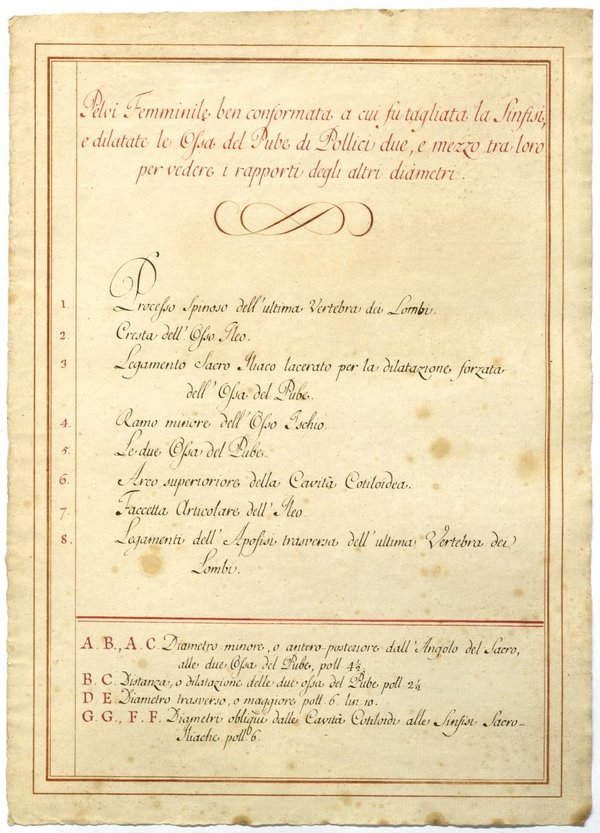 Pelvi Femminile ben conformata a cui fu tagliata la Sinfisi,
e dilatate le Ossa del Pube di Pollici due, e mezzo tra loro
per vedere i rapporti degli altri diametri.
1. Processo Spinoso dell'ultima Vertebra dei Lombi.
2. Cresta dell'Osso Ileo.
3 Legamento Sacro Iliaco lacerato per la dilatazione forzata
dell'Ossa del Pube.
4. Ramo minore dell'Osso Ischio.
5. Le due Ossa del Pube.
6. Arco superioriore della Cavità Cotiloidea.
7. Faccetta Articolare dell'Ileo.
8. Legamenti dell'Apofisi trasversa dell'ultima Vertebra dei
Lombi.
A. B., A. C. Diametro minore, o antero-posteriore dall'Angolo del Sacro,
alle due Ossa del Pube, poll 4½.
B. C. Distanza, o dilatazione delle due ossa del Pube poll. 2½
D. E. Diametro trasverso, o maggiore poll. 6. lin. 10.
G. G., F. F. Diametri obliqui dalle Cavità Cotiloidi alle Sinfisi Sacro-
Iliache poll. 6.